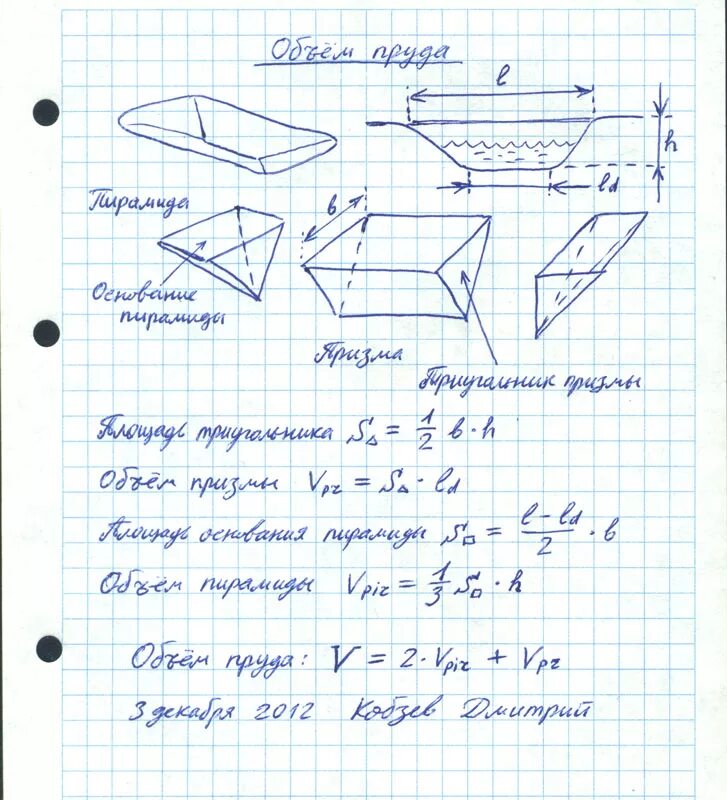 Объём пруда
l
h
ld
Пирамида
в
Основание
пирамиды
Призма
Триугольник призмы
Площадь триугольника S△ = 1/2 в · h
Объём призмы Vpr = S△ · ld
Площадь основания пирамиды S□ = (l - ld)/2 · в
Объём пирамиды Vpir = 1/3 S□ · h
Объём пруда: V = 2 · Vpir + Vpr
3 декабря 2012 Кобзев Дмитрий